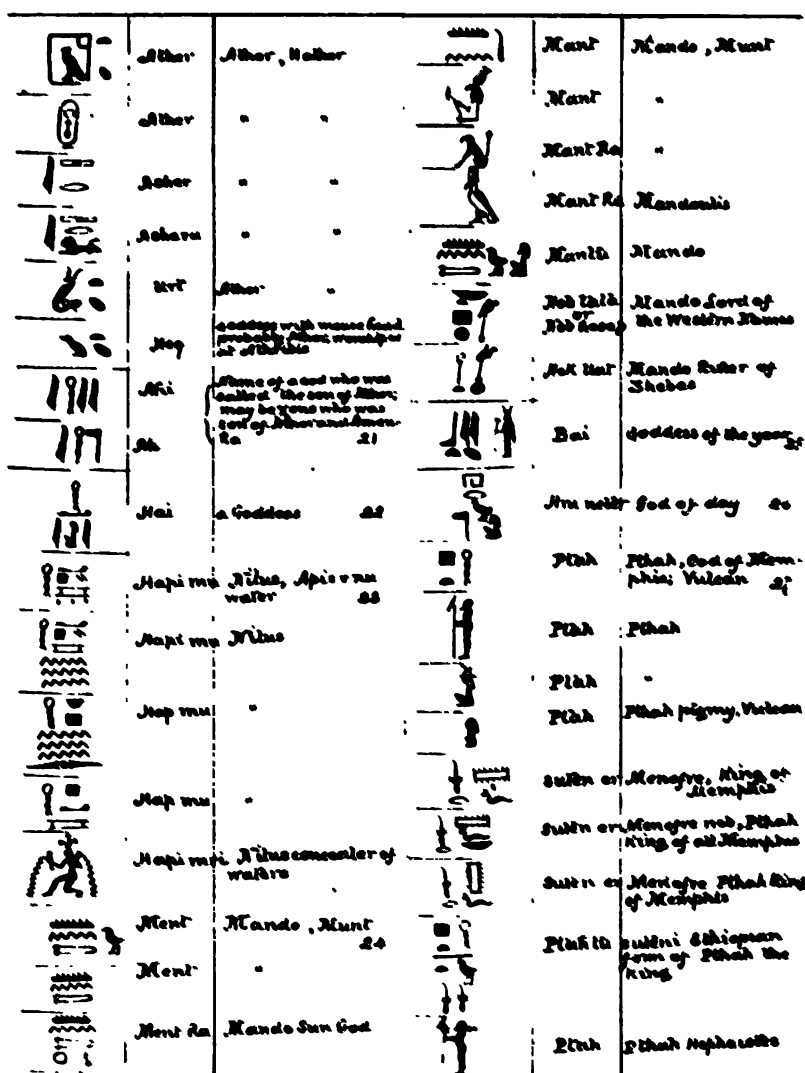 Athor Athor, Hathor
Athor " "
Athor " "
" "
Urt Athor "
Goddess with mouse head
probably Athor, worshiped
at Athribis
Ahi Name of a God who was
called the son of Athor;
may be who was
son of Athor and Amen-
Ra 21
Ah
Hai a Goddess 22
Hapi mu Nilus, Apis or nu
water 23
Hapi mu Nilus
Hap mu "
Hap mu "
Hapi Nilus concealer of
waters
Ment Mando, Munt
24
Ment "
Ment Ra Mando Sun God
Mant Mando, Munt
Mant "
Mant Ra "
Mant Ra Mandoulis
Mantu Mando
Mando Lord of
or the Western
Mando Ruler of
Thebes
Bai Goddess of the year 25
Hru God of day 26
Ptah Pthah, God of Mem-
phis; Vulcan 27
Ptah Pthah
Ptah "
Ptah Pthah pigmy, Vulcan
Suten en Menofre, King of
Memphis
Suten en Menofre neb, Pthah
King of all Memphis
Suten en Menofre Pthah King
of Memphis
Ethiopian
form of Pthah the
King
Ptah Pthah